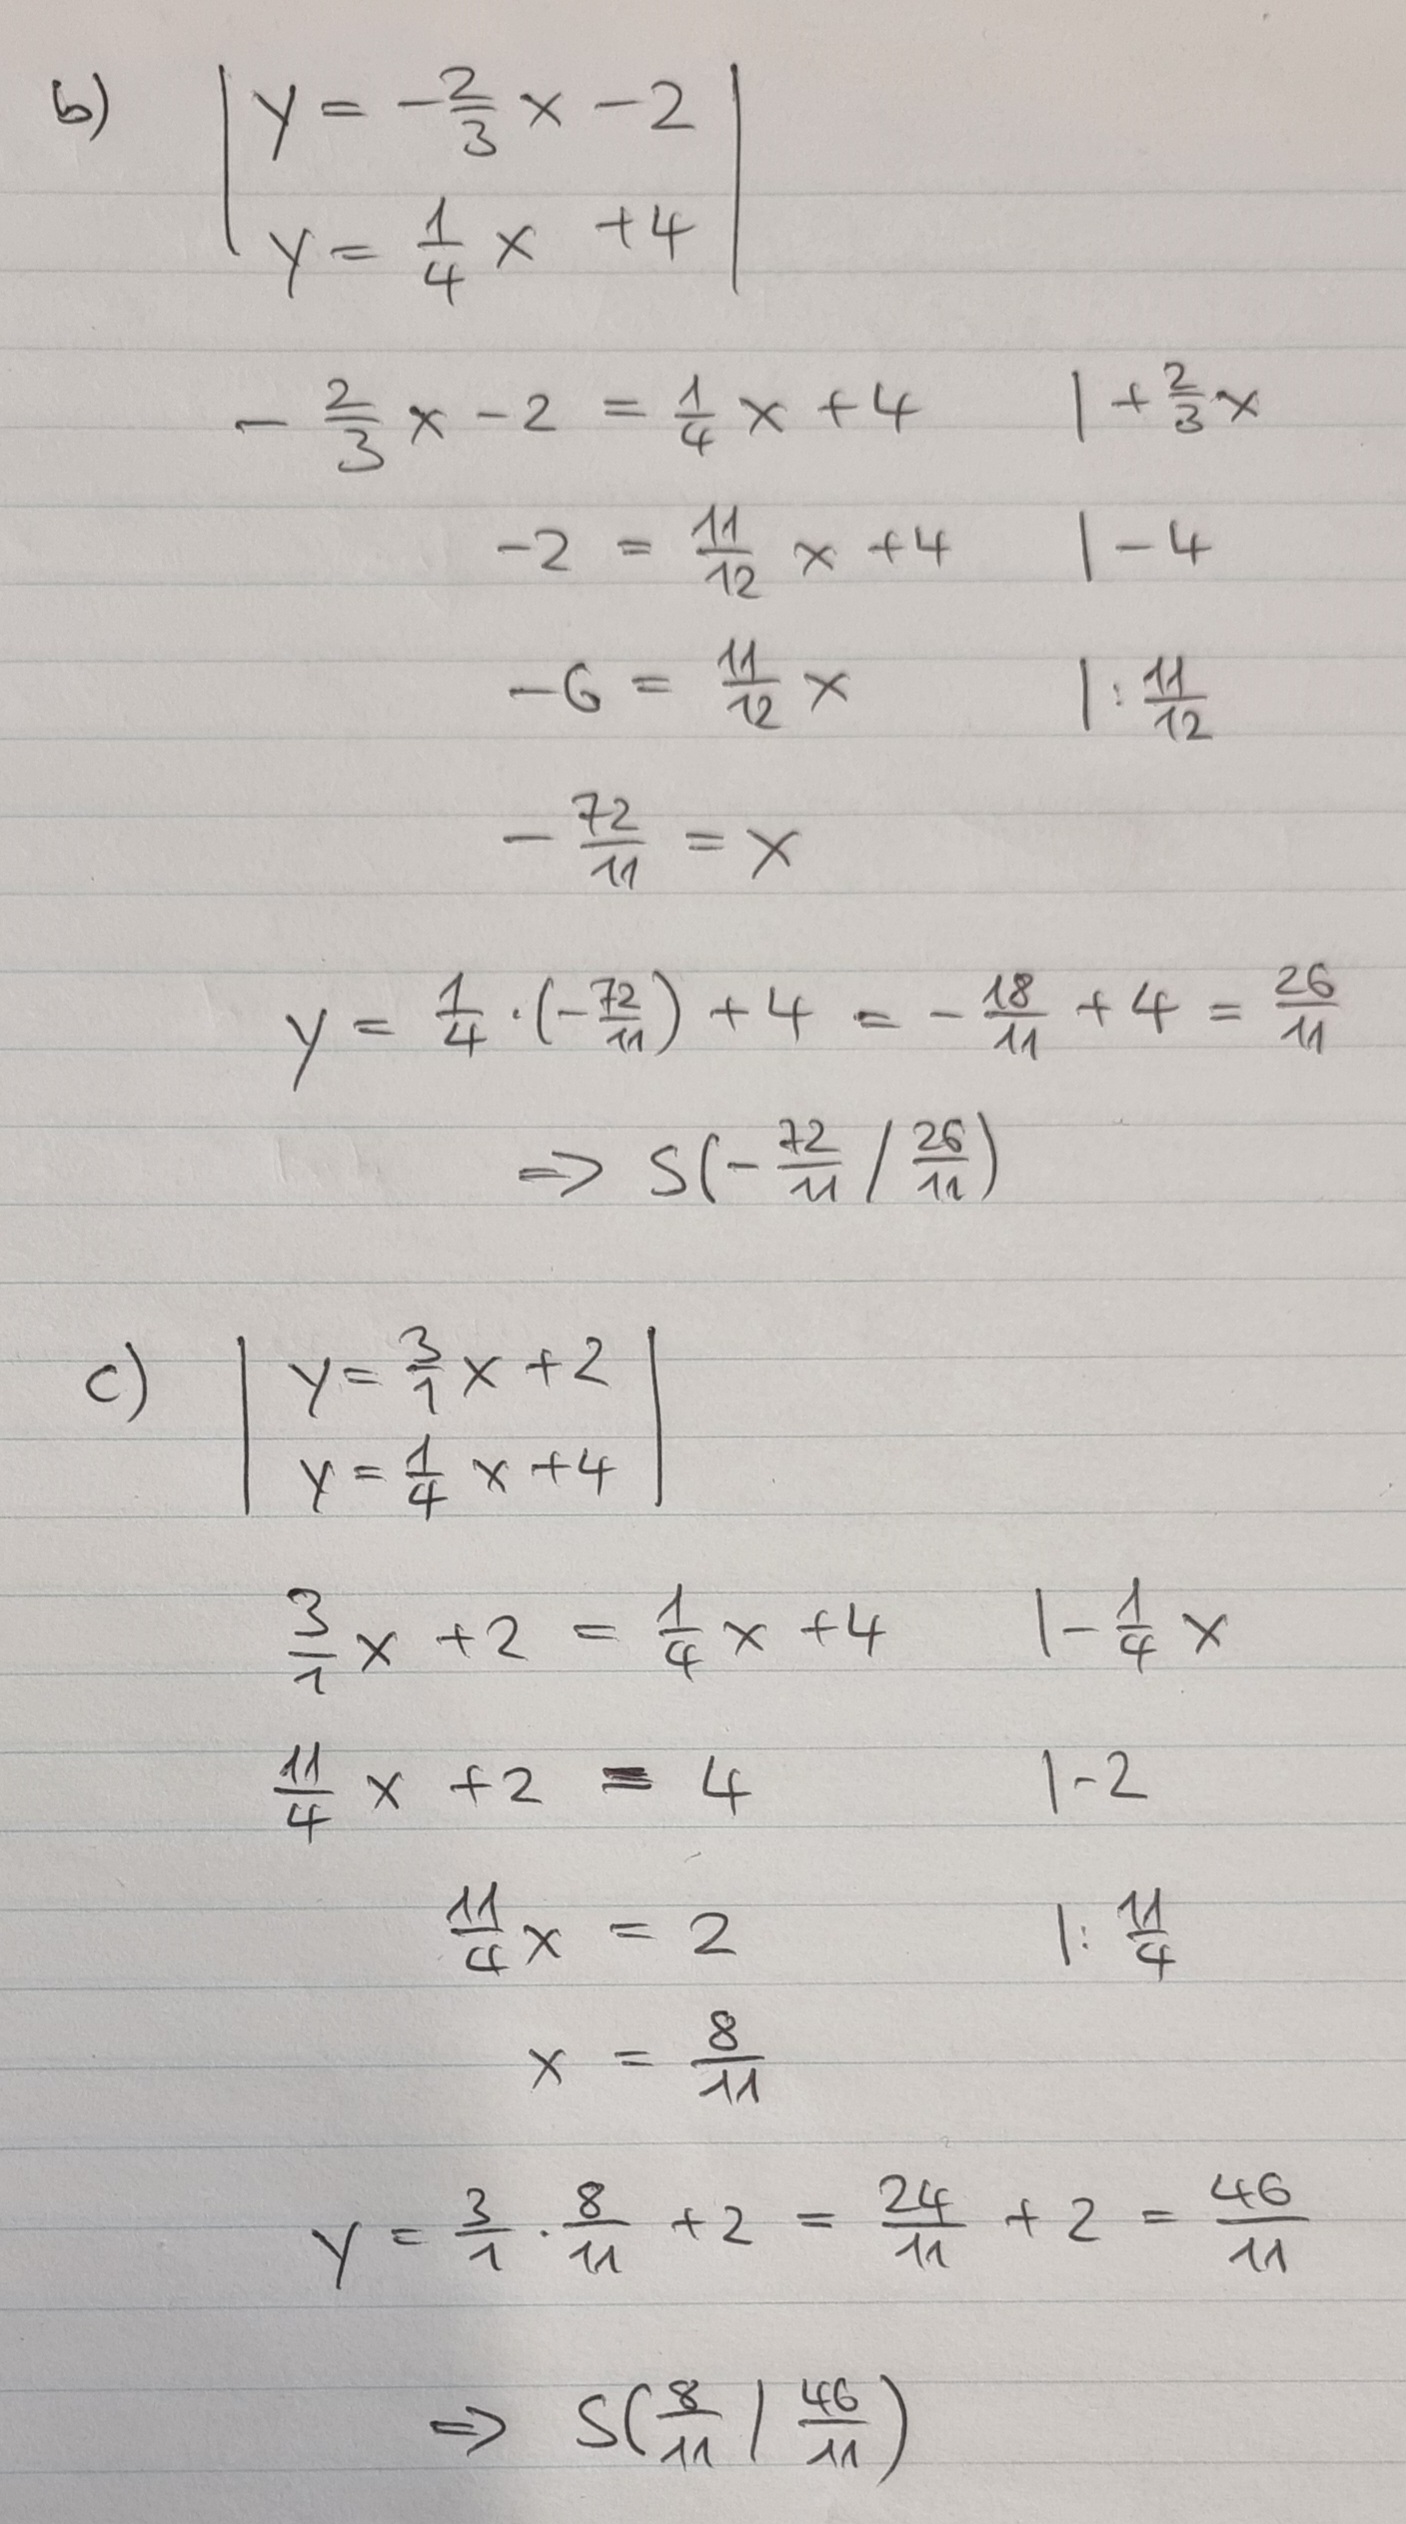 b) | y = -2/3 x - 2 |
| y = 1/4 x + 4 |
- 2/3 x - 2 = 1/4 x + 4 | + 2/3 x
-2 = 11/12 x + 4 | - 4
-6 = 11/12 x | : 11/12
- 72/11 = x
y = 1/4 · (- 72/11) + 4 = - 18/11 + 4 = 26/11
=> S(- 72/11 / 26/11)
c) | y = 3/1 x + 2 |
| y = 1/4 x + 4 |
3/1 x + 2 = 1/4 x + 4 | - 1/4 x
11/4 x + 2 = 4 | - 2
11/4 x = 2 | : 11/4
x = 8/11
y = 3/1 · 8/11 + 2 = 24/11 + 2 = 46/11
=> S(8/11 / 46/11)